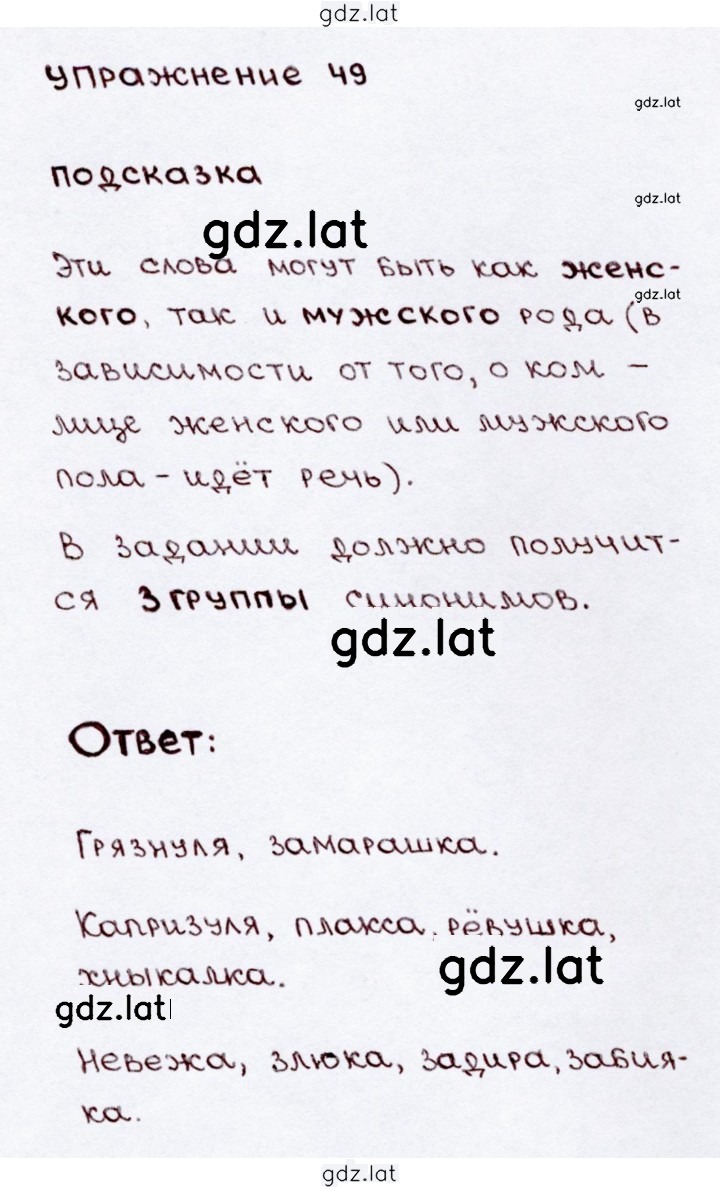 gdz.lat
упражнение 49
gdz.lat
подсказка
gdz.lat
gdz.lat
Эти слова могут быть как женс-
gdz.lat
кого, так и мужского рода (в
зависимости от того, о ком -
лице женского или мужского
пола - идёт речь).
В задании должно получит-
ся 3 группы синонимов.
gdz.lat
Ответ:
Грязнуля, замарашка.
Капризуля, плакса, рёвушка,
gdz.lat
хныкалка.
gdz.lat
Невежа, злюка, задира, забия-
ка.
gdz.lat